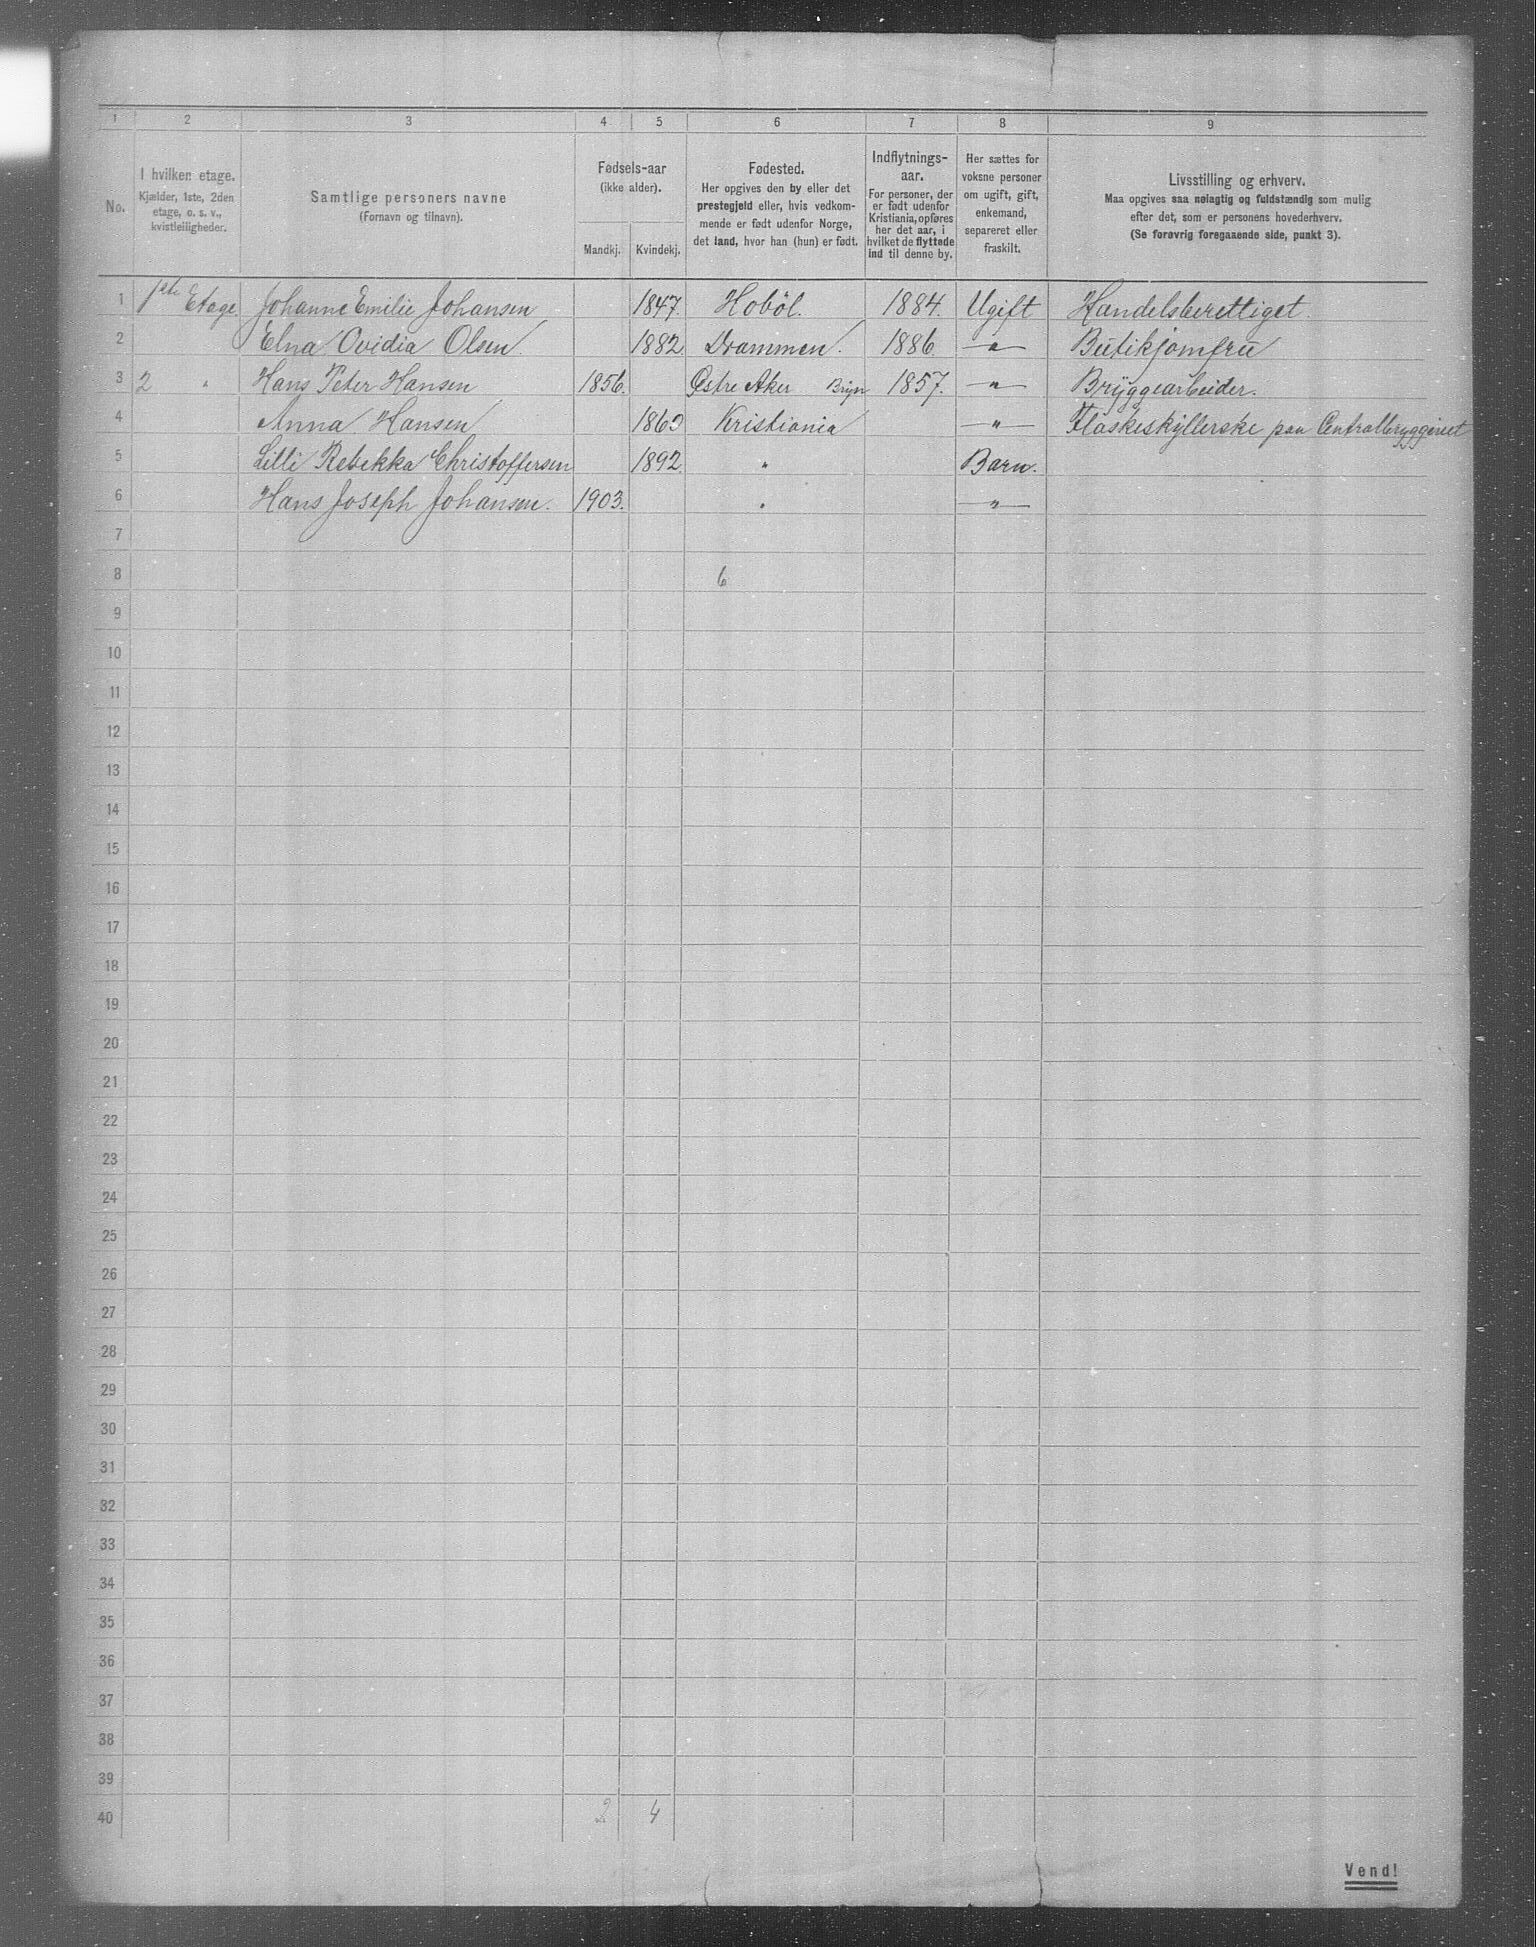 1 2 3 4 5 6 7 8 9
No.
I hvilken etage.
Kjælder, 1ste, 2den
etage, o. s. v.,
kvistleiligheder.
Samtlige personers navne
(Fornavn og tilnavn).
Fødsels-aar
(ikke alder).
Mandkj. Kvindekj.
Fødested.
Her opgives den by eller det
prestegjeld eller, hvis vedkom-
mende er født udenfor Norge,
det land, hvor han (hun) er født.
Indflytnings-
aar.
For personer, der
er født udenfor
Kristiania, opføres
her det aar, i
hvilket de flyttede
ind til denne by.
Her sættes for
voksne personer
om ugift, gift,
enkemand,
separeret eller
fraskilt.
Livsstilling og erhverv.
Maa opgives saa nøiagtig og fuldstændig som mulig
efter det, som er personens hovederhverv.
(Se forøvrig foregaaende side, punkt 3).
1 1ste Etage Johanne Emilie Johansen 1847. Hoböl. 1884. Ugift Handelsberettiget.
2 Elna Ovidia Olsen. 1882. Drammen. 1886. " Butikjomfru
3 2 " Hans Peter Hansen 1856. Østre Aker Bryn 1857. " Bryggearbeider.
4 Anna Hansen 1860 Kristiania " Flaskeskyllerske paa Centralbryggeriet
5 Lilli Rebekka Christoffersen 1892. " Barn.
6 Hans Joseph Johansen. 1903. " "
7
8 6
9
10
11
12
13
14
15
16
17
18
19
20
21
22
23
24
25
26
27
28
29
30
31
32
33
34
35
36
37
38
39
40 2 4
Vend!